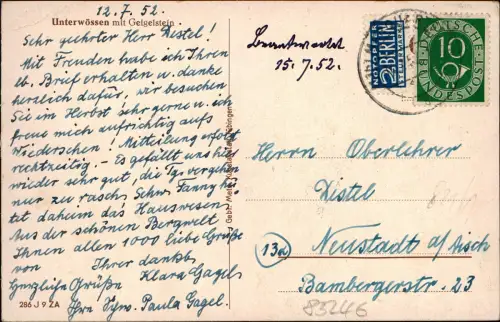 12.7.52.
Unterwössen mit Geigelstein
Sehr geehrter Herr Distel!
Mit Freuden habe ich Ihren
lb. Brief erhalten u. danke
herzlich dafür, wir besuchen
Sie im Herbst sehr gerne u. ich
freue mich aufrichtig aufs
Wiedersehen! Mitteilung erfolgt
rechtzeitig. — Es gefällt uns hier
wieder sehr gut, die Tg. vergehen
nur zu rasch, Schw. Fanny hü-
tet daheim das Hauswesen.
Aus der schönen Bergwelt
Ihnen allen 1000 liebe Grüße
von Ihrer dankb.
Klara Gagel
Herzliche Grüße
Ihre Schw. Paula Gagel.
286 J 9 ZA
Gebr. Metz, Tübingen
Beantwortet
15.7.52.
NOTOPFER
2 BERLIN
STEUERMARKE
DEUTSCHE
BUNDESPOST
10
Herrn Oberlehrer
Distel
13a
Neustadt a/Aisch
Bambergerstr. 23
83246